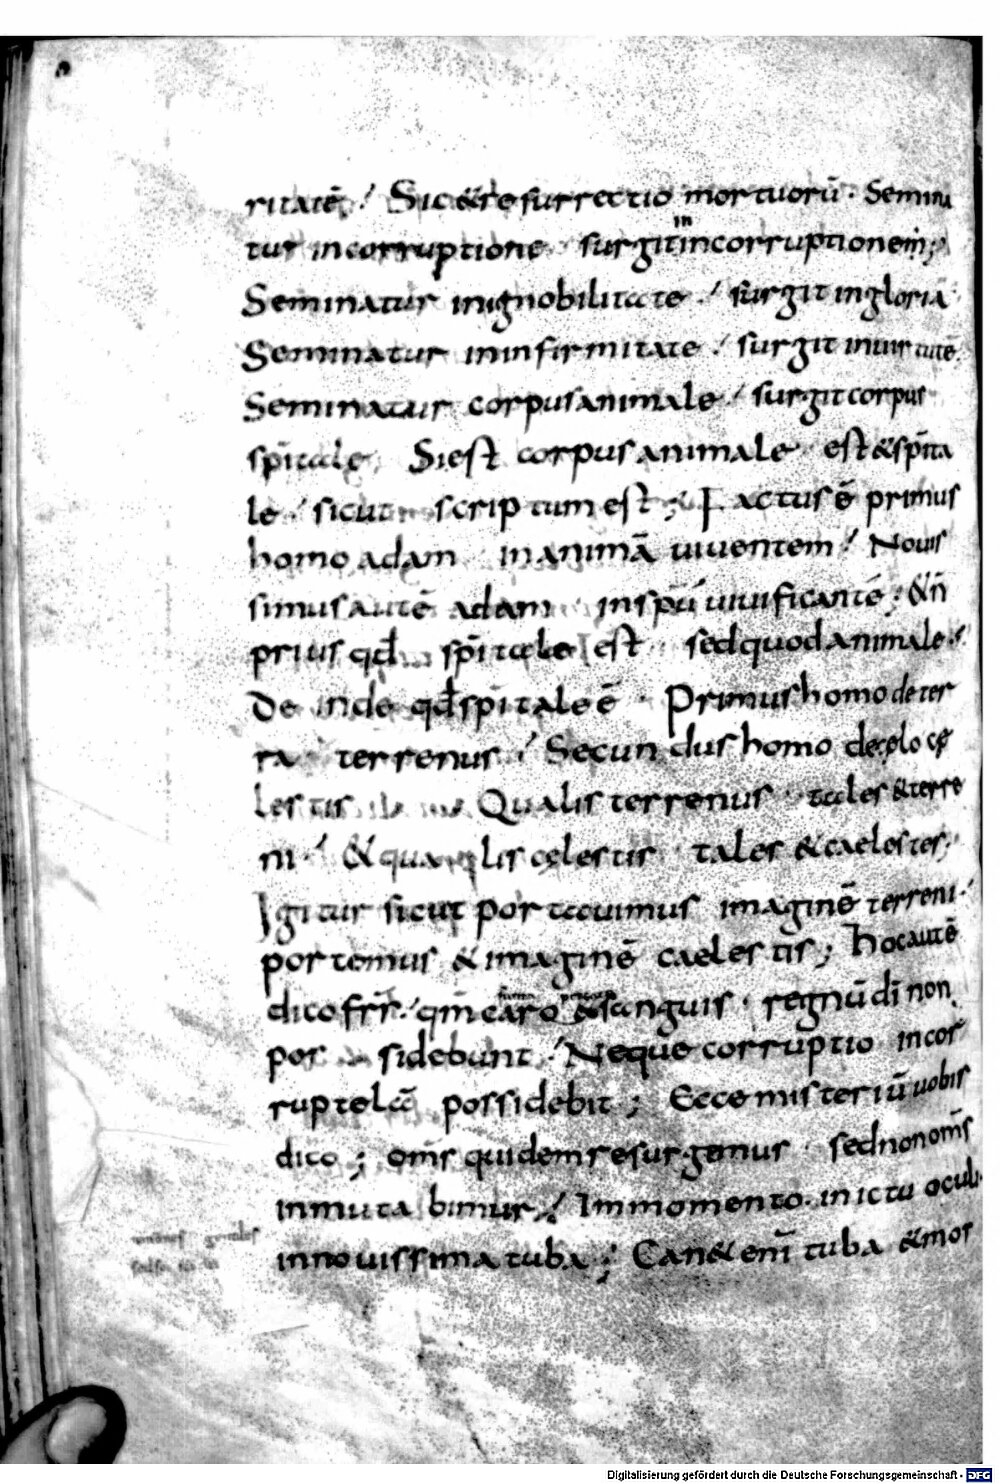 ritatē. Sic & resurrectio mortuorū. Semina
tur incorruptione surgit in incorruptionem;
Seminatur inignobilitate. surgit ingloria
Seminatur ininfirmitate. surgit inuirtutē.
Seminatur corpus animale. surgit corpus
sp̄itale, Si est corpus animale est & sp̄ita
le. sicut scriptum est; Factus ē primus
homo adam inanimā uiuentem. Nouis
simus autē adam inspm̄ uiuificantē; & n̄
prius qd̄ sp̄itale est sed quod animale.
De inde qd̄ spitale ē. Primus homo de ter
ra terrenus. Secundus homo de cęlo cę
lestis Qualis terrenus tales & terre
ni. & qualis cęlestis tales & caelestes,
Igitur sicut portauimus imaginē terreni.
portemus & imaginē caelestis; hoc autē
dico frr̄. qm̄ caro & sanguis. regnū dī non
por sidebunt. Neque corruptio incor
ruptelā possidebit; Ecce misteriū uobis
dico; oms̄ quidem resurgemus. sed non oms̄
inmutabimur. Inmomento. inictu oculi
innouissima tuba; Can& enī tuba & mor
Digitalisierung gefördert durch die Deutsche Forschungsgemeinschaft - DFG